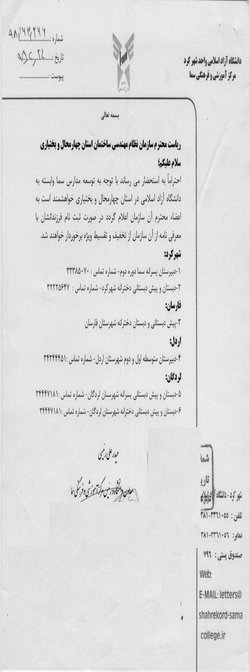 دانشگاه آزاد اسلامی واحد شهر کرد
مرکز آموزشی و فرهنگی سما
شماره:
تاریخ:
پیوست:
بسمه تعالی
ریاست محترم سازمان نظام مهندسی ساختمان استان چهارمحال و بختیاری
سلام علیکم؛
احتراماً به استحضار می رساند با توجه به توسعه مدارس سما وابسته به
دانشگاه آزاد اسلامی در استان چهارمحال و بختیاری خواهشمند است به
اعضاء محترم آن سازمان اعلام گردد در صورت ثبت نام فرزندانشان با
معرفی نامه از آن سازمان از تخفیف و تقسیط ویژه برخوردار خواهند شد.
شهرکرد:
۱-دبیرستان پسرانه سما دوره دوم - شماره تماس: ۳۳۳۸۵۰۷۰
۲-دبستان و پیش دبستانی دخترانه شهرکرد- شماره تماس: ۳۲۲۲۵۶۴۷
فارسان:
۳-پیش دبستانی و دبستان دخترانه شهرستان فارسان
اردل:
۴-دبیرستان متوسطه اول و دوم شهرستان اردل- شماره تماس: ۳۴۳۴۴۴۵۱
لردگان:
۵-دبستان و پیش دبستانی پسرانه شهرستان لردگان- شماره تماس: ۳۴۴۴۷۱۸۱
۶-دبستان و پیش دبستانی دخترانه شهرستان لردگان- شماره تماس: ۳۴۴۴۷۱۸۱
شما
تاری
شهر کرد- دانشگاه آزاد
تلفن: ۳۳۶۱۰۵۵-۰۳۸۱
نمابر: ۳۳۶۱۰۵۶-۰۳۸۱
صندوق پستی: ۷۹۶
Web:
E-MAIL: letters@
shahrekord-sama
college.ir